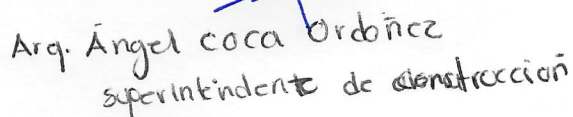 Arq. Ángel coca Ordoñez
superintindente de construccion